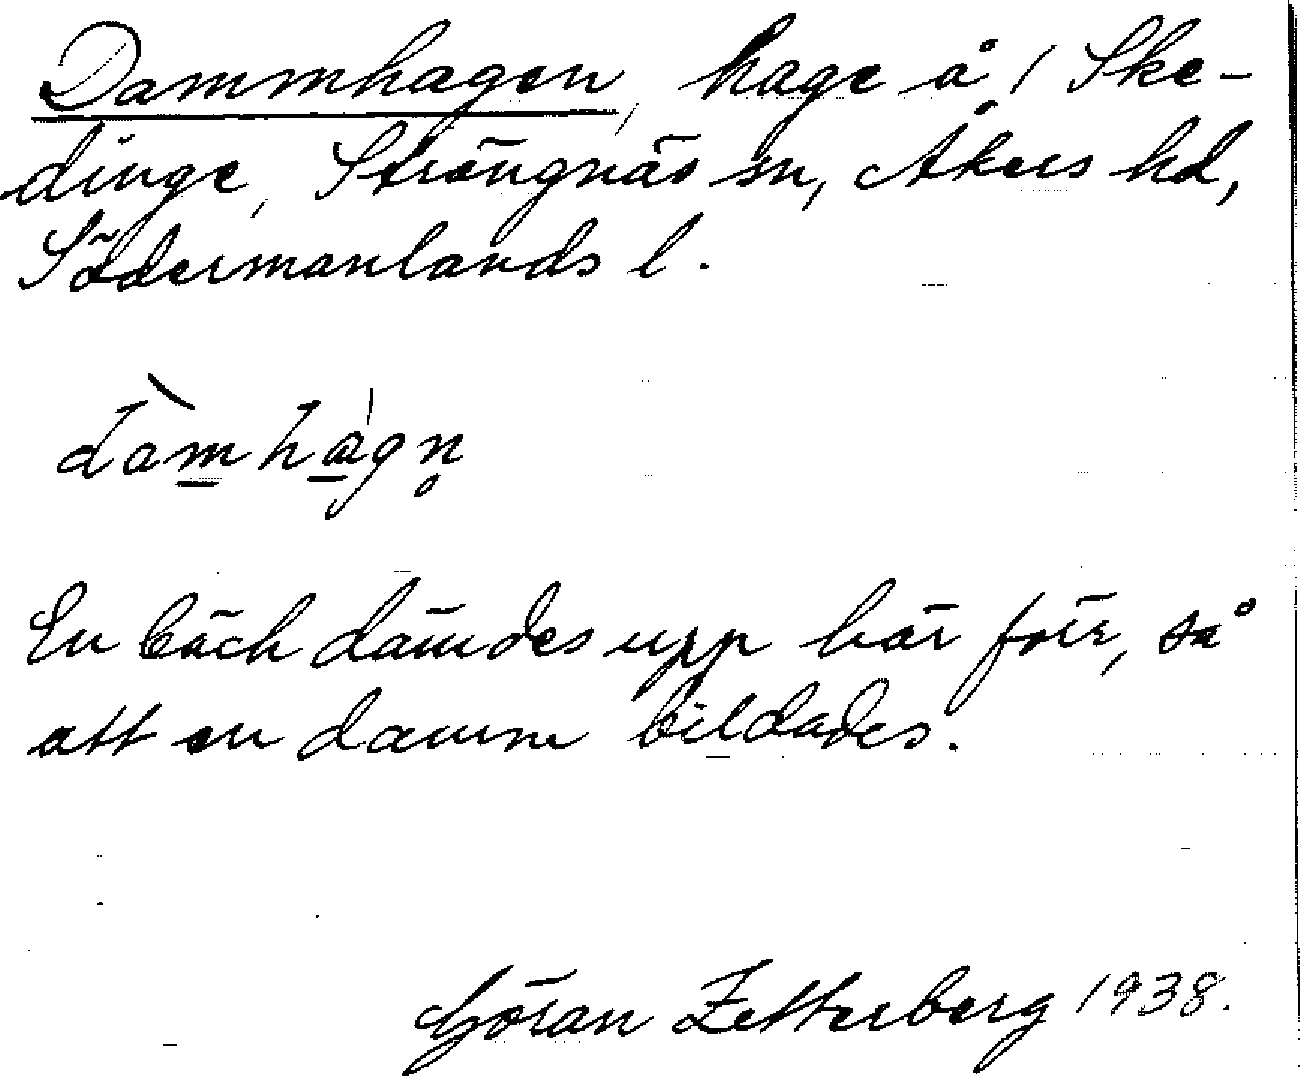 Dammhagen, hage å 1 Ske-
dinge, Strängnäs sn, Åkers hd,
Södermanlands l.
dàmhágn̥
En bäck dämdes upp här förr, så
att en damm bildades.
Göran Zetterberg 1938.